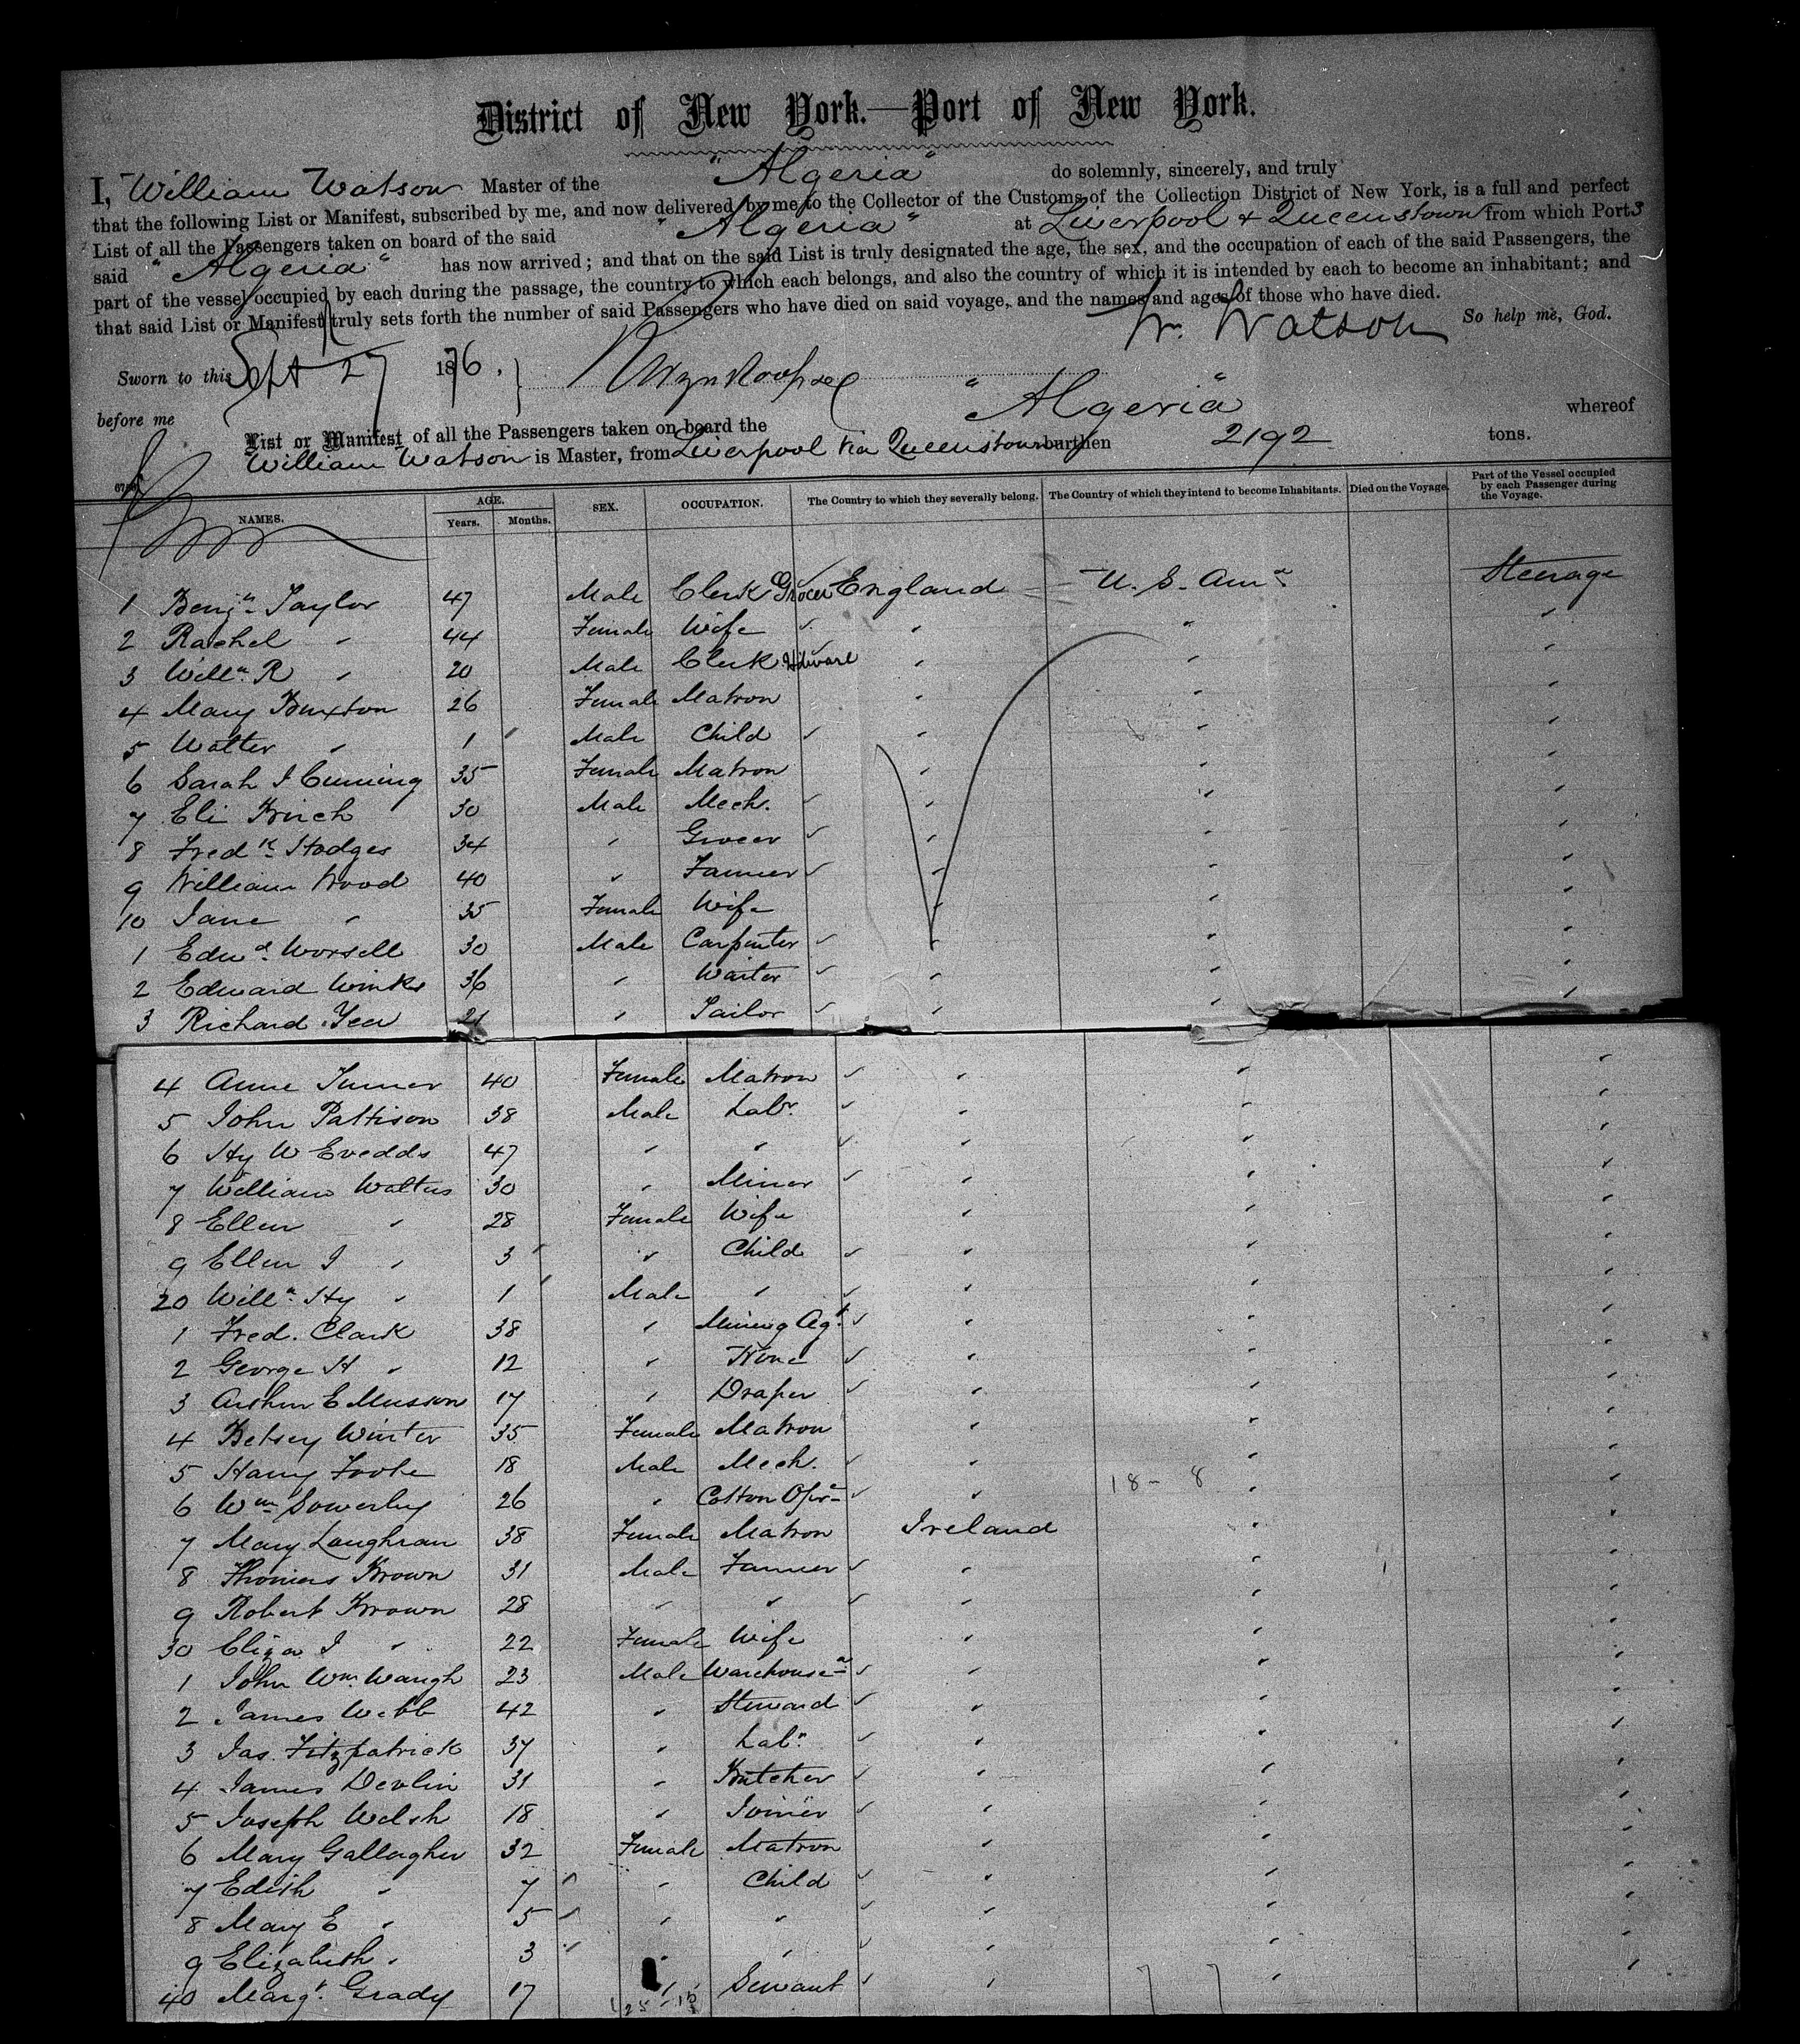 District of New York.—Port of New York.
I, William Watson Master of the "Algeria" do solemnly, sincerely, and truly
that the following List or Manifest, subscribed by me, and now delivered by me to the Collector of the Customs of the Collection District of New York, is a full and perfect
List of all the Passengers taken on board of the said "Algeria" at Liverpool & Queenstown from which Ports
said "Algeria" has now arrived; and that on the said List is truly designated the age, the sex, and the occupation of each of the said Passengers, the
part of the vessel occupied by each during the passage, the country to which each belongs, and also the country of which it is intended by each to become an inhabitant; and
that said List or Manifest truly sets forth the number of said Passengers who have died on said voyage, and the names and ages of those who have died.
So help me, God.
Wm. Watson
Sworn to this Sept 27 1876,
before me
List or Manifest of all the Passengers taken on board the "Algeria" whereof
William Watson is Master, from Liverpool via Queenstown burthen 2192 tons.
NAMES. AGE. Years. Months. SEX. OCCUPATION. The Country to which they severally belong. The Country of which they intend to become Inhabitants. Died on the Voyage. Part of the Vessel occupied by each Passenger during the Voyage.
1 Benjn Taylor 47 Male Clerk Grocer England U. S. Ama Steerage
2 Rachel " 44 Female Wife " " "
3 Willm R " 20 Male Clerk Hdware " " "
4 Mary Buxton 26 Female Matron " " "
5 Walter " 1 Male Child " " "
6 Sarah J Cuming 35 Female Matron " " "
7 Eli Birch 30 Male Mech. " " "
8 Fredk Hodges 34 " Grocer " " "
9 William Wood 40 " Farmer " " "
10 Jane " 35 Female Wife " " "
1 Edwd Worsell 30 Male Carpenter " " "
2 Edward Winks 36 " Waiter " " "
3 Richard Yeo 21 " Tailor " " "
4 Anne Turner 40 Female Matron " " "
5 John Pattison 38 Male Labr " " "
6 Hy W Evedds 47 " " " " "
7 William Walters 30 " Miner " " "
8 Ellen " 28 Female Wife " " "
9 Ellen J " 3 " Child " " "
20 Willm Hy " 1 Male " " " "
1 Fred. Clark 38 " Mining Agt " " "
2 George H " 12 " None " " "
3 Arthur E Musson 17 " Draper " " "
4 Betsey Winter 35 Female Matron " " "
5 Harry Foote 18 Male Mech. " " "
6 Wm Sowerby 26 " Cotton Opr " 18 - 8 " "
7 Mary Loughran 38 Female Matron Ireland " "
8 Thomas Brown 31 Male Farmer " " "
9 Robert Brown 28 " " " " "
30 Eliza J " 22 Female Wife " " "
1 John Wm Waugh 23 Male Warehousen " " "
2 James Webb 42 " Steward " " "
3 Jas. Fitzpatrick 37 " Labr " " "
4 James Devlin 31 " Butcher " " "
5 Joseph Welsh 18 " Joiner " " "
6 Mary Gallagher 32 Female Matron " " "
7 Edith " 7 " Child " " "
8 Mary E " 5 " " " " "
9 Elizabeth " 3 " " " " "
40 Margt Grady 17 " Servant " " "